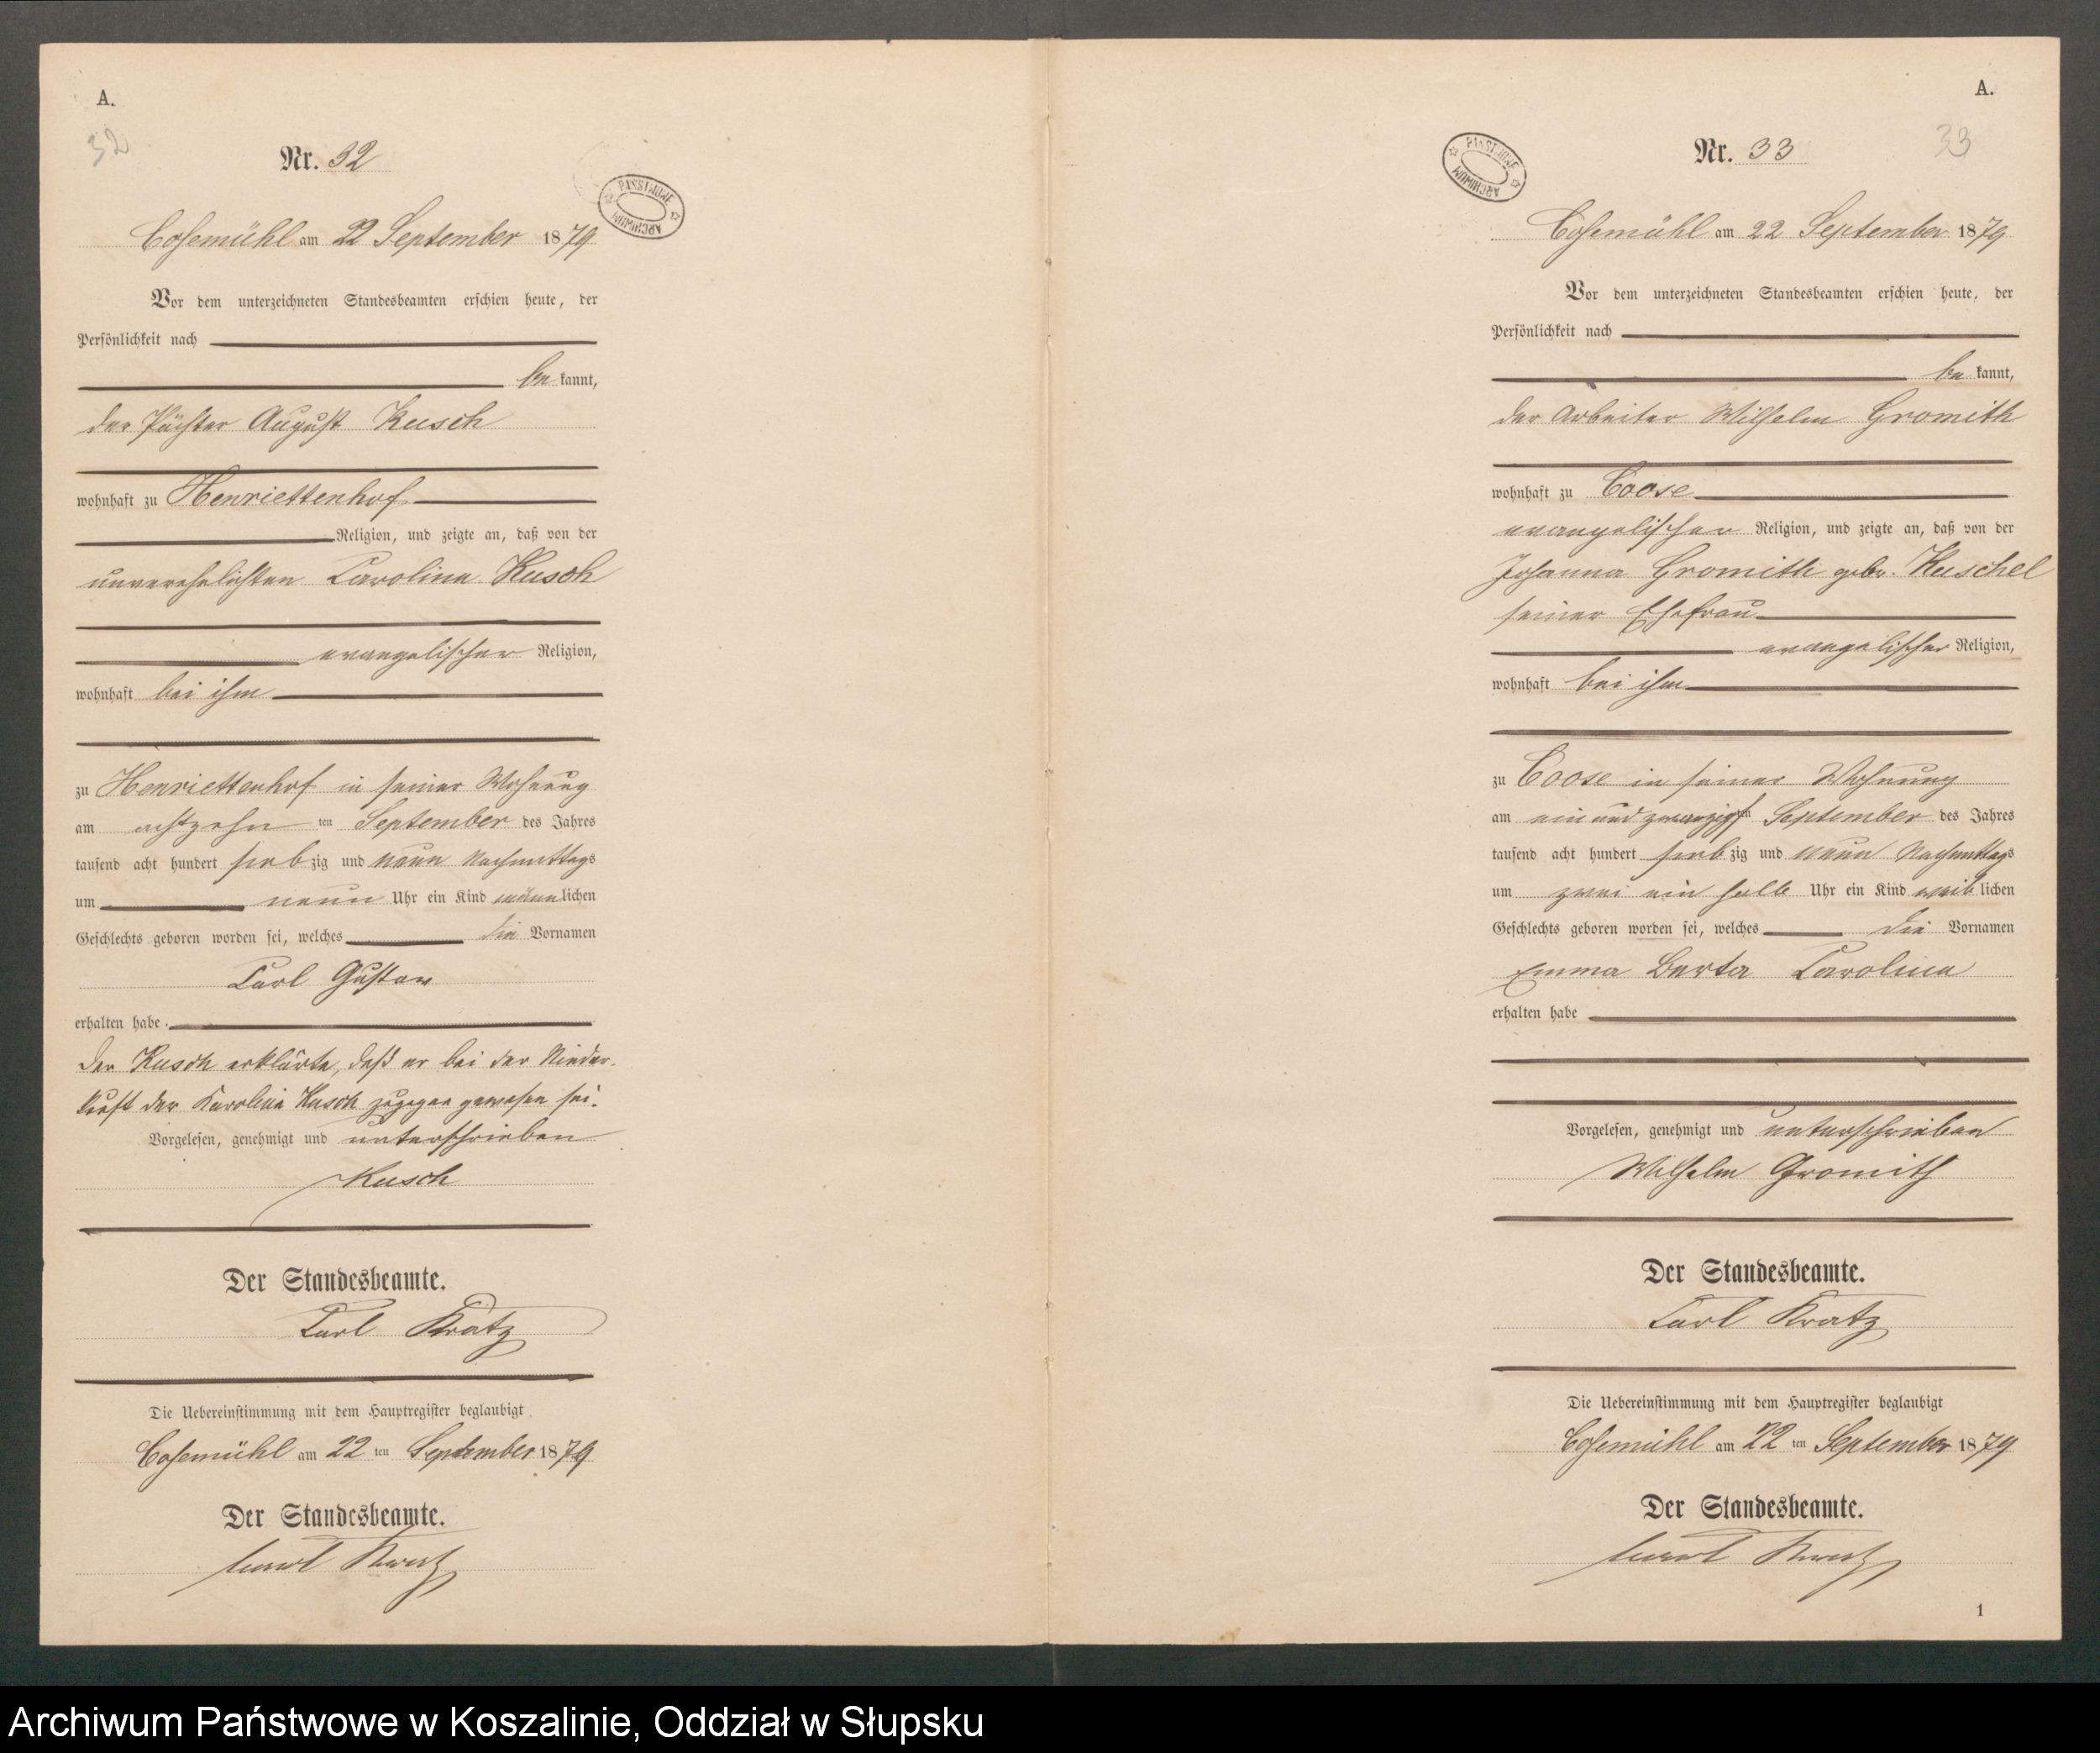 A.
32
Nr. 32
PAŃSTWOWE ARCHIWUM
Cosemühl am 22 September 1879
Vor dem unterzeichneten Standesbeamten erschien heute, der
Persönlichkeit nach
be kannt,
der Pächter August Kusch
wohnhaft zu Henriettenhof
Religion, und zeigte an, daß von der
unverehelichten Caroline Kusch
evangelischer Religion,
wohnhaft bei ihm
zu Henriettenhof in seiner Wohnung
am achtzehn ten September des Jahres
tausend acht hundert siebzig und neun Nachmittags
um neun Uhr ein Kind männlichen
Geschlechts geboren worden sei, welches die Vornamen
Carl Gustav
erhalten habe.
Der Kusch erklärte, daß er bei der Nieder-
kunft der Karoline Kusch zugegen gewesen sei.
Vorgelesen, genehmigt und unterschrieben
Kusch
Der Standesbeamte.
Carl Kratz
Die Uebereinstimmung mit dem Hauptregister beglaubigt
Cosemühl am 22 ten September 1879
Der Standesbeamte.
Carl Kratz
A.
33
Nr. 33
PAŃSTWOWE ARCHIWUM
Cosemühl am 22 September 1879
Vor dem unterzeichneten Standesbeamten erschien heute, der
Persönlichkeit nach
be kannt,
der Arbeiter Wilhelm Gromith
wohnhaft zu Coose
evangelischer Religion, und zeigte an, daß von der
Johanna Gromith geb. Kuschel
seiner Ehefrau
evangelischer Religion,
wohnhaft bei ihm
zu Coose in seiner Wohnung
am ein und zwanzigsten September des Jahres
tausend acht hundert siebzig und neun Nachmittags
um zwei ein halb Uhr ein Kind weiblichen
Geschlechts geboren worden sei, welches die Vornamen
Emma Berta Caroline
erhalten habe
Vorgelesen, genehmigt und unterschrieben
Wilhelm Gromith
Der Standesbeamte.
Carl Kratz
Die Uebereinstimmung mit dem Hauptregister beglaubigt
Cosemühl am 22 ten September 1879
Der Standesbeamte.
Carl Kratz
1
Archiwum Państwowe w Koszalinie, Oddział w Słupsku